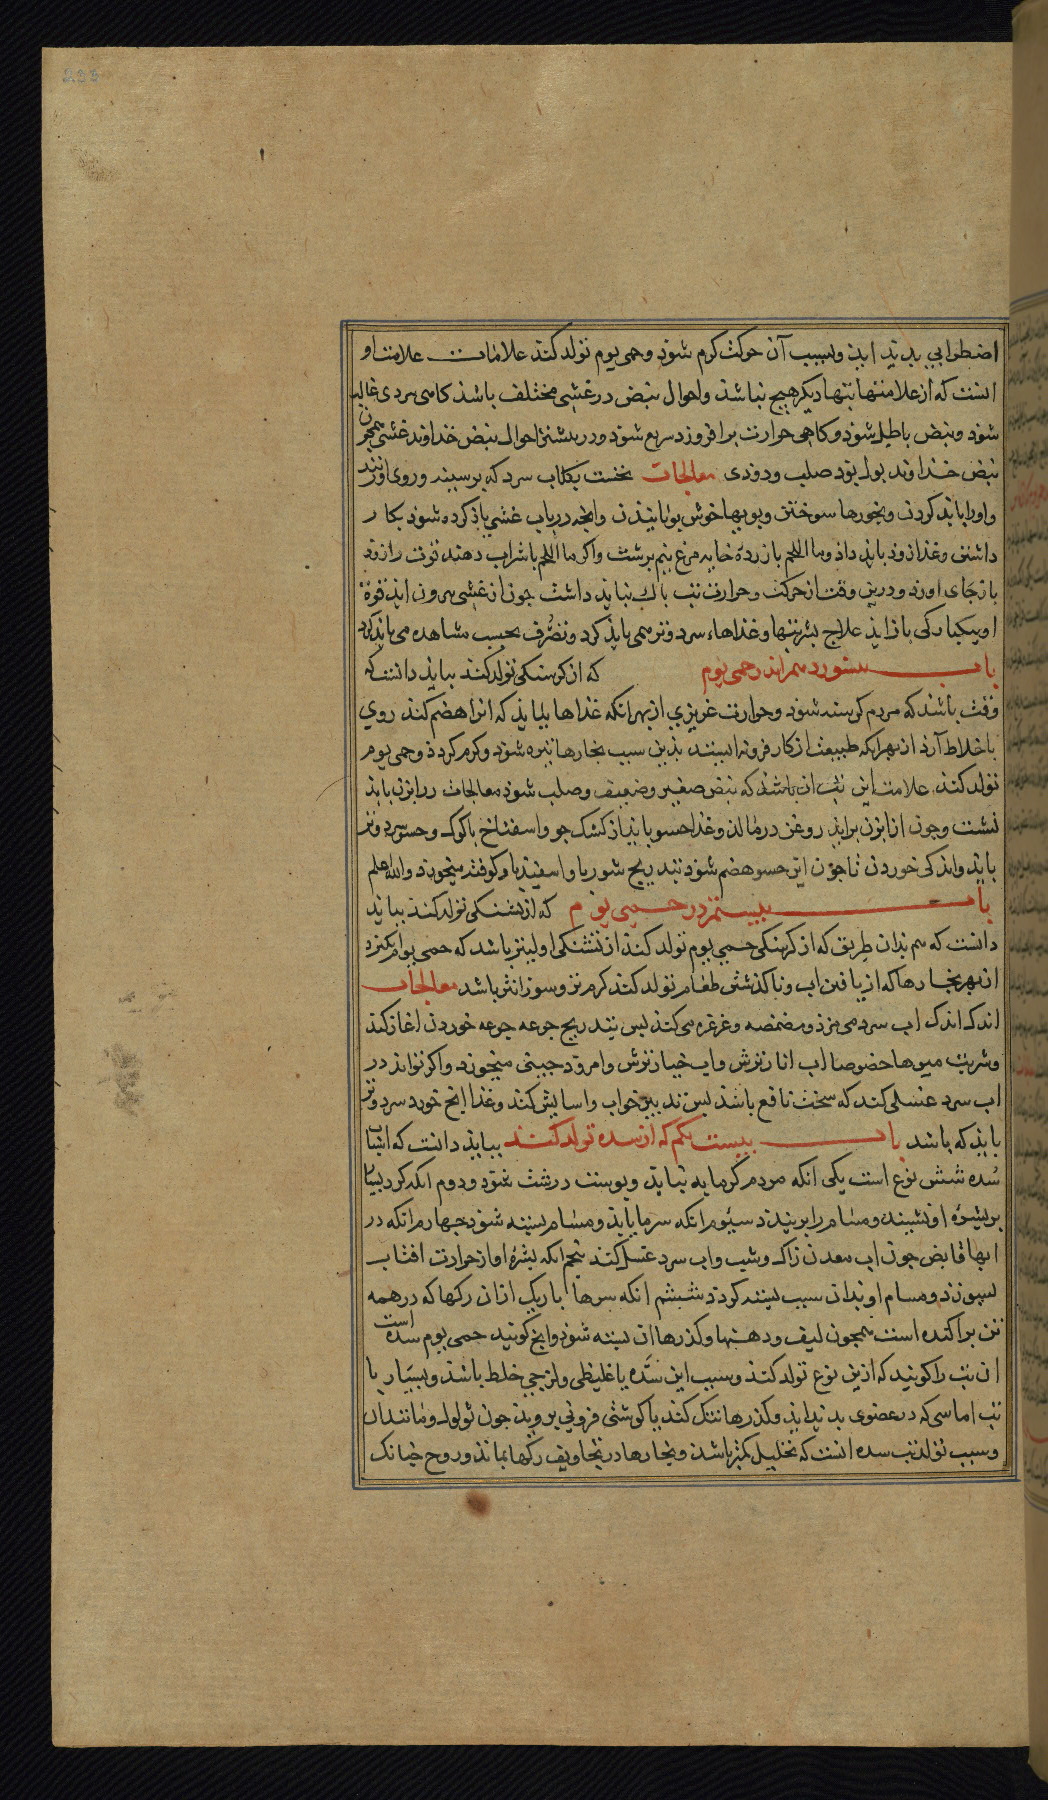 اضطرابی پدید اید و بسبب آن حرکت کرم شوذ و حمی یوم تولد کند علامات علامت او
انست که از علامتهاء تبها دیکر هیچ نباشذ و احوال نبض در غشی مختلف باشذ کاهی سردی غالب
شوذ و نبض باطل شوذ و کاهی حرارت برافروزد سریع شوذ و در بیشتر احوال نبض خداوند غشی همچون
نبض خداوند بوذ صلب و دودی معالجات نخست بکلاب سرد که بر سینه و روی او زنند
و اورا بایذ کردن و بخورها سوختن و بویهاء خوش بویانیدن و انچه در باب غشی یاذ کرده شوذ بکار
داشتن و غذا زوذ بایذ داذ و ما اللحم با زردهٔ خایه مرغ نیم برشت و اکر ما اللحم با شراب دهند قوت را زوذ
بازجای اورد و درین وقت از حرکت و حرارت تب باک نبایذ داشت جون از غشی بیرون ایذ قوة
او بیکبارکی بازایذ علاج بترتیبها و غذاهاء سرد و تر همی بایذ کرد و تصرف بحسب مشاهده می بایذ کرد
باب اندر حمی یوم که از کرسنکی تولد کند ببایذ دانست که
وقت باشذ که مردم کرسنه شوذ و حرارت غریزی از بهر انکه غذاها بیابذ که انرا هضم کند روی
باخلاط آرذ از بهر انکه طبیعت از کار فرونه ایستد بدین سبب بخارها تیره شوذ و کرم کردذ و حمی یوم
تولد کند علامت این تب ان باشذ که نبض صغیر و ضعیف و صلب شوذ معالجات در ابزن بایذ
نشست و جون از ابزن برایذ روغن در مالذ و غذا حسو بایذ از کشک جو و اسفناخ با کوک و حسو سرد و تر
بایذ و اندکی خوردن تا جون این حسو هضم شوذ بتدریج شوربا و اسفیدبا و کوفته میخورد والله اعلم
باب بیستم در حمی یوم که از تشنکی تولد کند ببایذ
دانست که هم بدان طریق که از کرسنکی حمی یوم تولد کند از تشنکی اولیتر باشد که حمی یوم انکیزد
از بهر بخارها که از نایافتن اب و ناکذشتن طعام تولد کند کرم تر و سوزانتر باشد معالجات
اندک اندک اب سرد می مزذ و مضمضه و غرغره می کند پس بتدریج جرعه جرعه خوردن اغاز کند
و شربت میوها خصوصا اب انار ترش و اب خیار ترش و امروذ جینی میخورد و اکر تواند در
اب سرد غسلی کند که سخت نافع باشذ پس تدبیر خواب و اسایش کند و غذا انج خورد سرد و تر
بایذ که باشد باب بیست یکم که از سده تولد کند ببایذ دانست که اسباب
سده شش نوع است یکی انکه مردم کرمابه نیابذ و پوست درشت شوذ و دوم انکه کرد بسیار
بر بشرهٔ او نشیند و مسام را ببندد سیوم انکه سرما یابذ و مسام بسته شوذ جهارم انکه در
ابهاء قابض جون اب معدن زاک و شب و اب سرد غسل کند پنجم انکه بشرهٔ او از حرارت افتاب
بسوزذ و مسام او بدان سبب بسته کردذ ششم انکه سرهاء باریک از ان رکها که در همه
تن براکنده است همجون لیف و دهنها و کذرها ان بسته شوذ و انج کویند حمی یوم سده است
ان تب را کویند که ازین نوع تولد کند و سبب این سده یا غلیظی و لزجی خلط باشذ و بسیار یا
تب اماسی که در عضوی بدید ایذ و کذرها تنک کند یا کوشتی فزونی برویذ جون ثولول و مانند ان
و سبب تولد تب سده انست که تحلیل کمتر باشذ و بخارها در تجاویف رکها بماند و روح جنانک